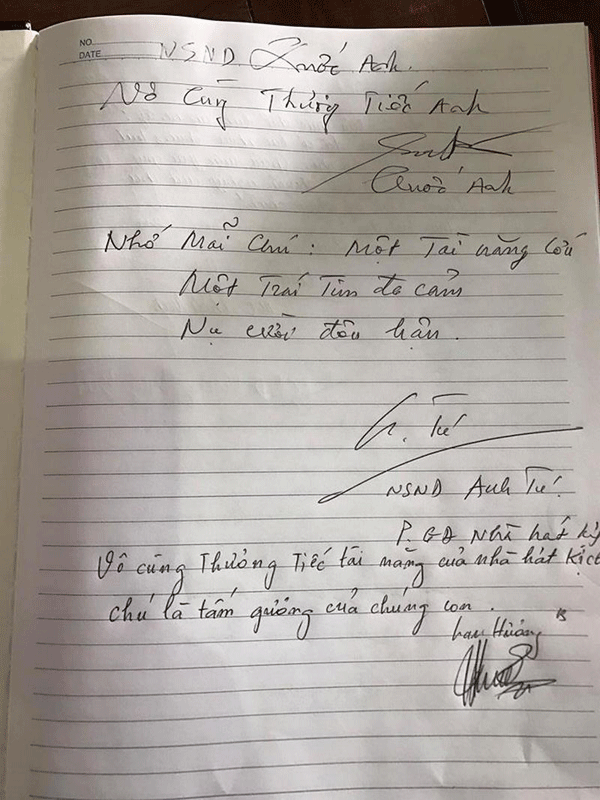 NO.
DATE
NSND Quốc Anh.
Vô Cùng Thương Tiếc Anh
Quốc Anh
Nhớ Mãi Chú: Một Tài năng lớn
Một Trái Tim đa cảm
Nụ cười đôn hậu.
A. Tú
NSND Anh Tú.
P. GĐ Nhà hát kị
Vô cùng Thương Tiếc tài năng của nhà hát kịch
chú là tấm gương của chúng con.
Lan Hương B